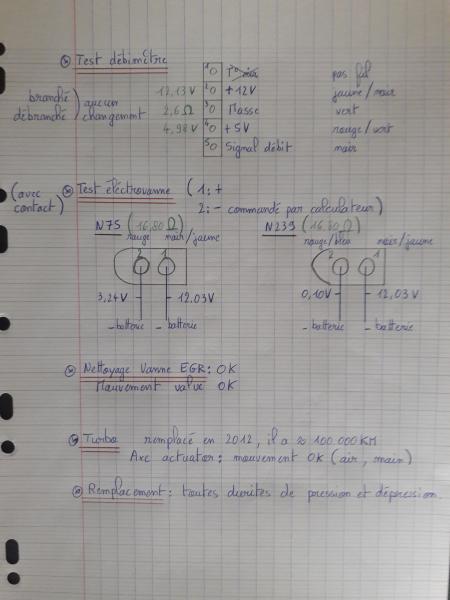 Test débimètre
1 T° air pas fil
branché 12,13V 2 +12V jaune/noir
débranché aucun changement 2,6Ω 3 Masse vert
4,98V 4 +5V rouge/vert
5 Signal débit noir
(avec contact) Test électrovanne (1: +
2: - commandé par calculateur)
N75 (16,80 Ω) N239 (16,80 Ω)
rouge noir/jaune rouge/bleu noir/jaune
2 1 2 1
3,24V 12,03V 0,10V 12,03V
- batterie - batterie - batterie - batterie
Nettoyage Vanne EGR: OK
Mouvement valve OK
Turbo remplacé en 2012, il a ≈ 100 000 KM
Axe actuator: mouvement OK (air, main)
Remplacement: toutes durites de pression et dépression.